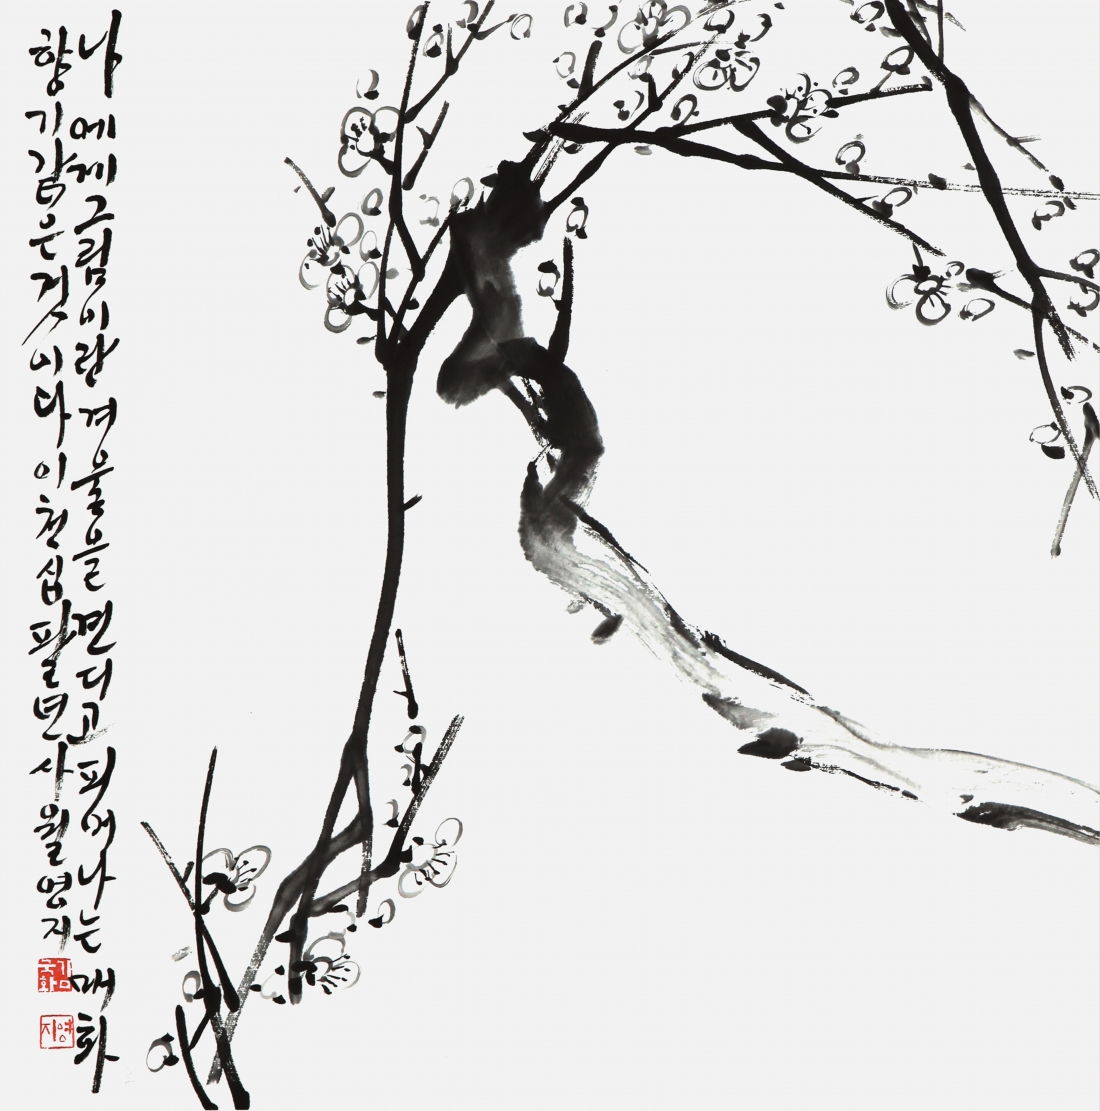 나에게 그림이란 겨울을 견디고 피어나는 매화
향기 같은 것이다 이천십팔년 사월 영지
김국화
영지